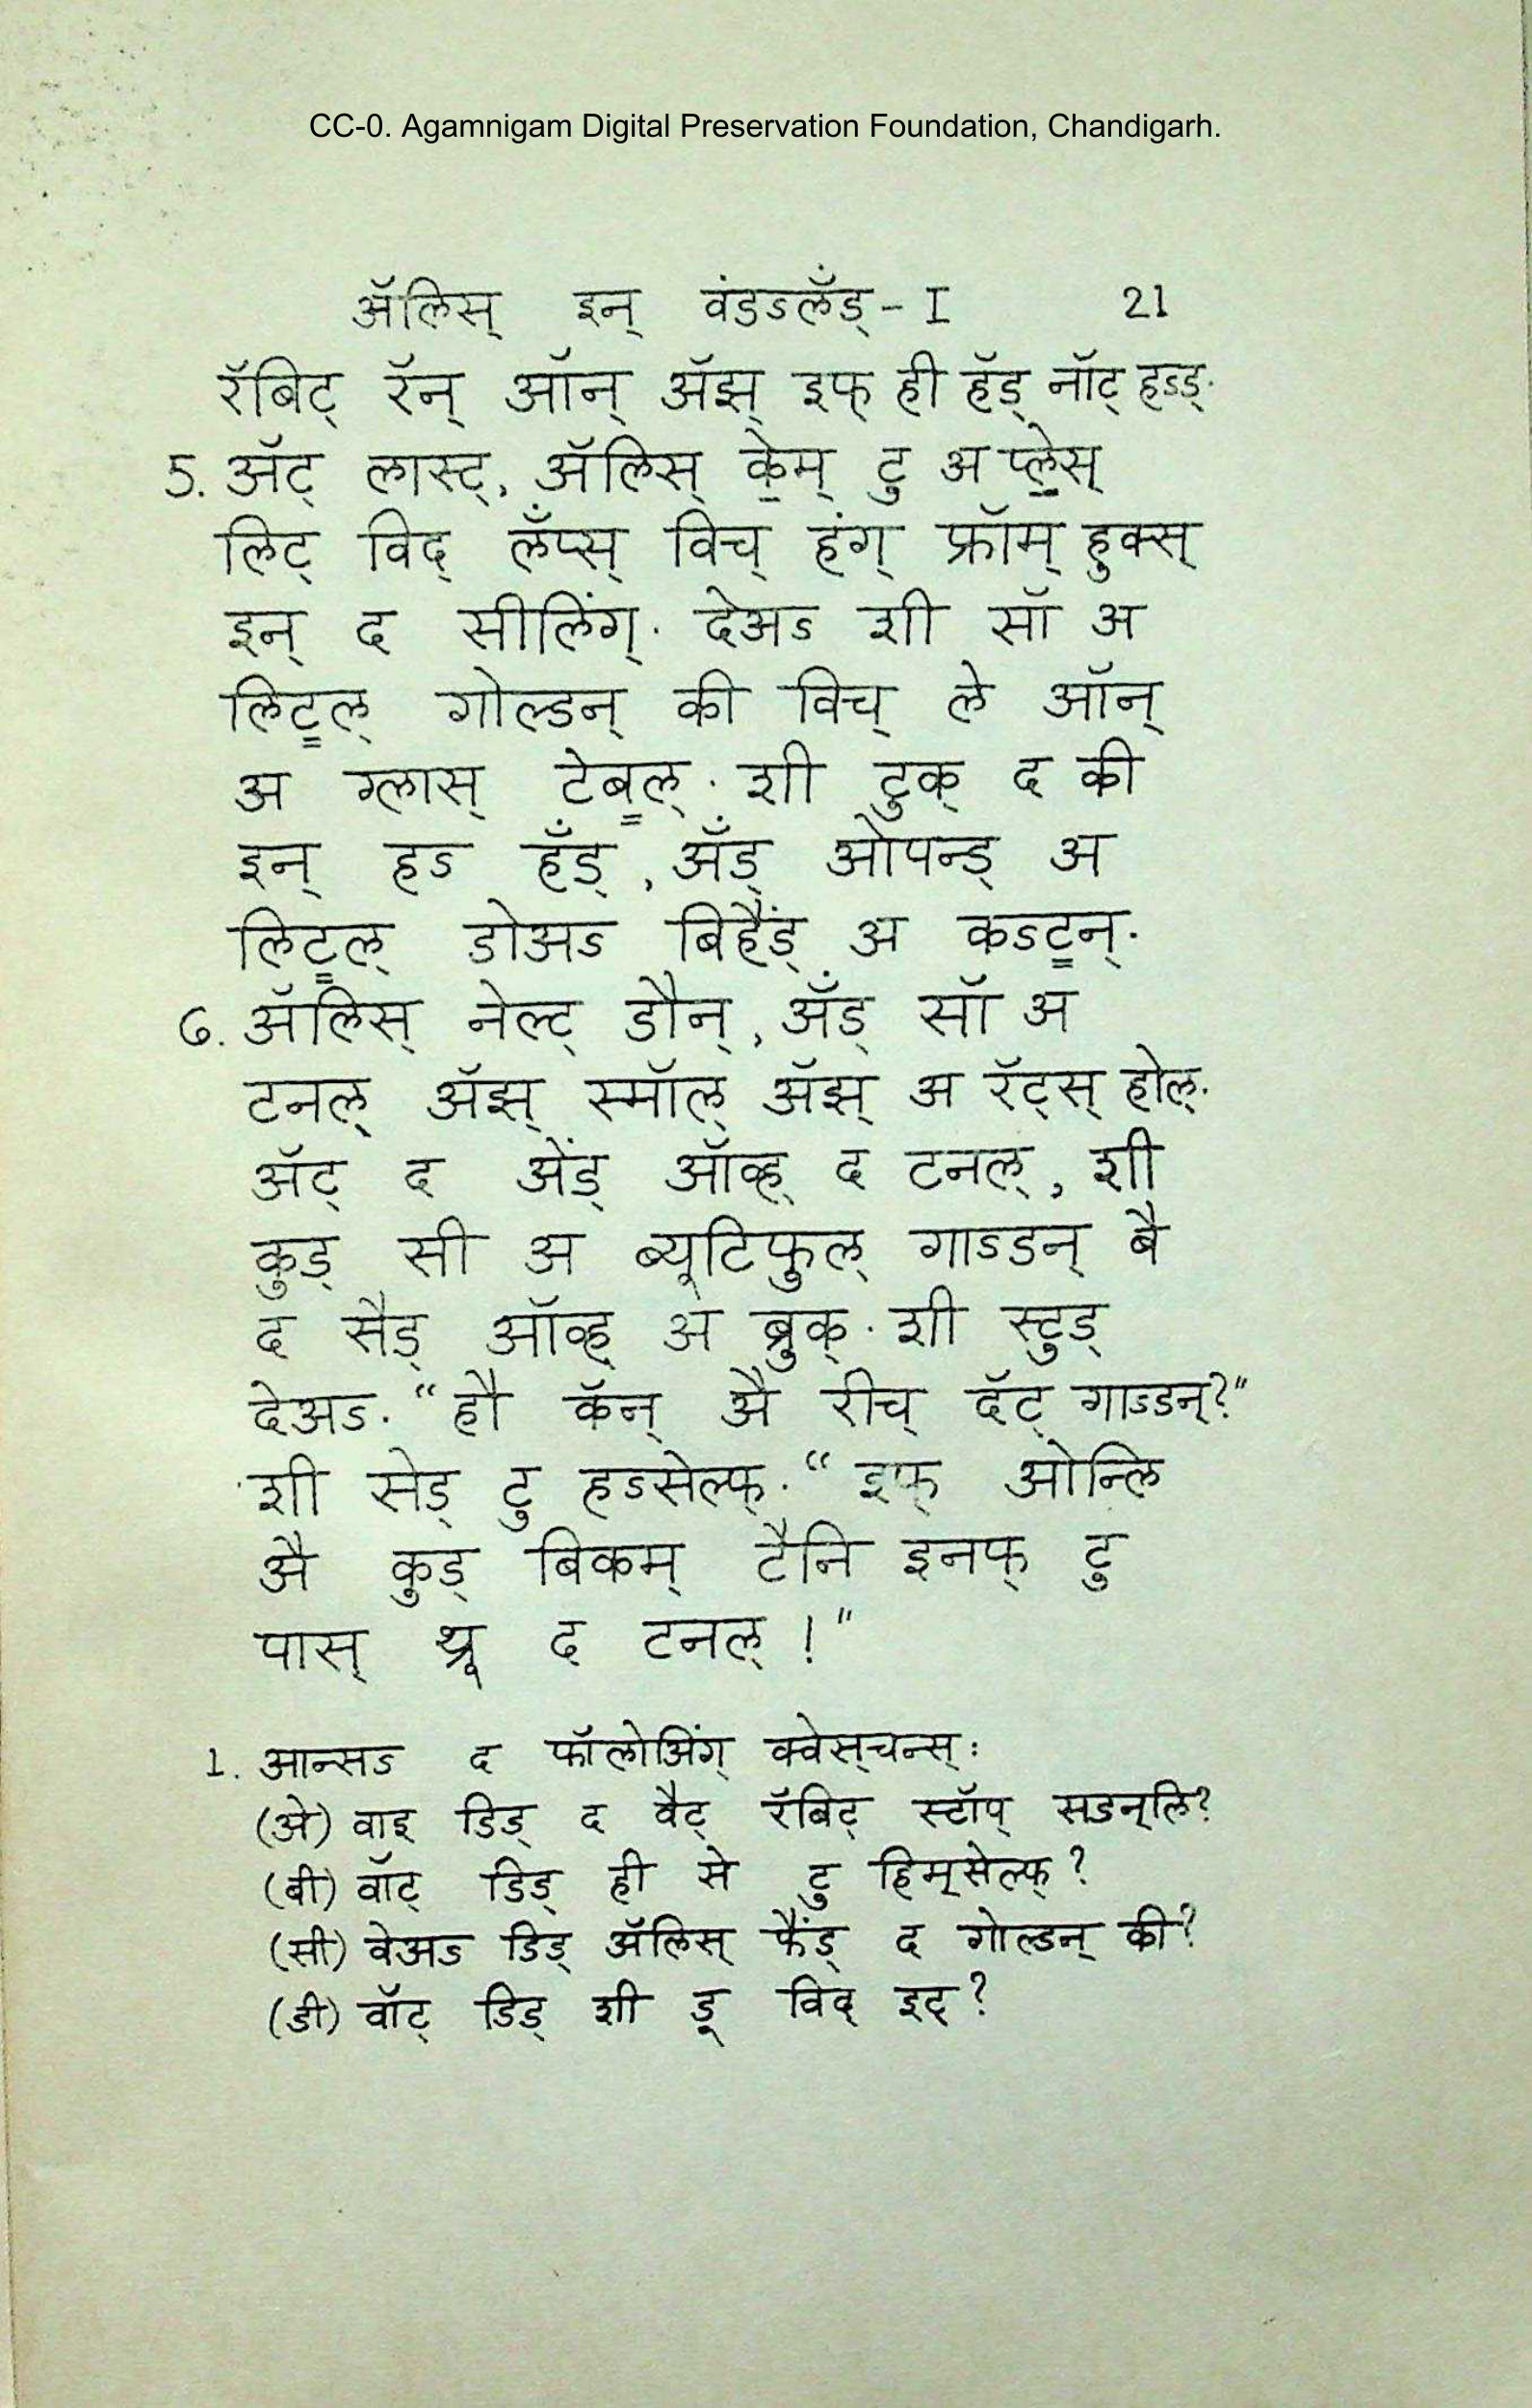 CC-0. Agamnigam Digital Preservation Foundation, Chandigarh.
ॲलिस् इन् वंडऽलॅंड् - I 21
रॅबिट् रॅन् ऑन् ॲझ् इफ् ही हॅड् नॉट् हऽड्.
5. ॲट् लास्ट्, ॲलिस् के॒म् टु अ प्ले॒स्
लिट् विद् लॅंप्स् विच् हंग् फ्रॉम् हुक्स्
इन् द सीलिंग्. देअऽ शी सॉ अ
लिट्ल् गोल्डन् की विच् ले ऑन्
अ ग्लास् टेब्ल्. शी टुक् द की
इन् हऽ हॅंड्, ॲंड् ओपन्ड् अ
लिट्ल् डोअऽ बिहैंड् अ कऽट्न्.
6. ॲलिस् नेल्ट् डौन्, ॲंड् सॉ अ
टनल् ॲझ् स्मॉल् ॲझ् अ रॅट्स् होल्.
ॲट् द अेंड् ऑव्ह् द टनल्, शी
कुड् सी अ ब्यूटिफुल् गाऽडन् बै
द सैड् ऑव्ह् अ ब्रुक्. शी स्टुड्
देअऽ. "हौ कॅन् अै रीच् दॅट् गाऽडन्?"
शी सेड् टु हऽसेल्फ्. "इफ् ओन्लि
अै कुड् बिकम् टैनि इनफ् टु
पास् थ्रू द टनल्!"
1. आन्सऽ द फॉलोअिंग् क्वेस्‌चन्स्:
(अे) वाइ डिड् द वैट् रॅबिट् स्टॉप् सडन्‌लि?
(बी) वॉट् डिड् ही से टु हिम्‌सेल्फ्?
(सी) वेअऽ डिड् ॲलिस् फैंड् द गोल्डन् की?
(डी) वॉट् डिड् शी डू विद् इट्?